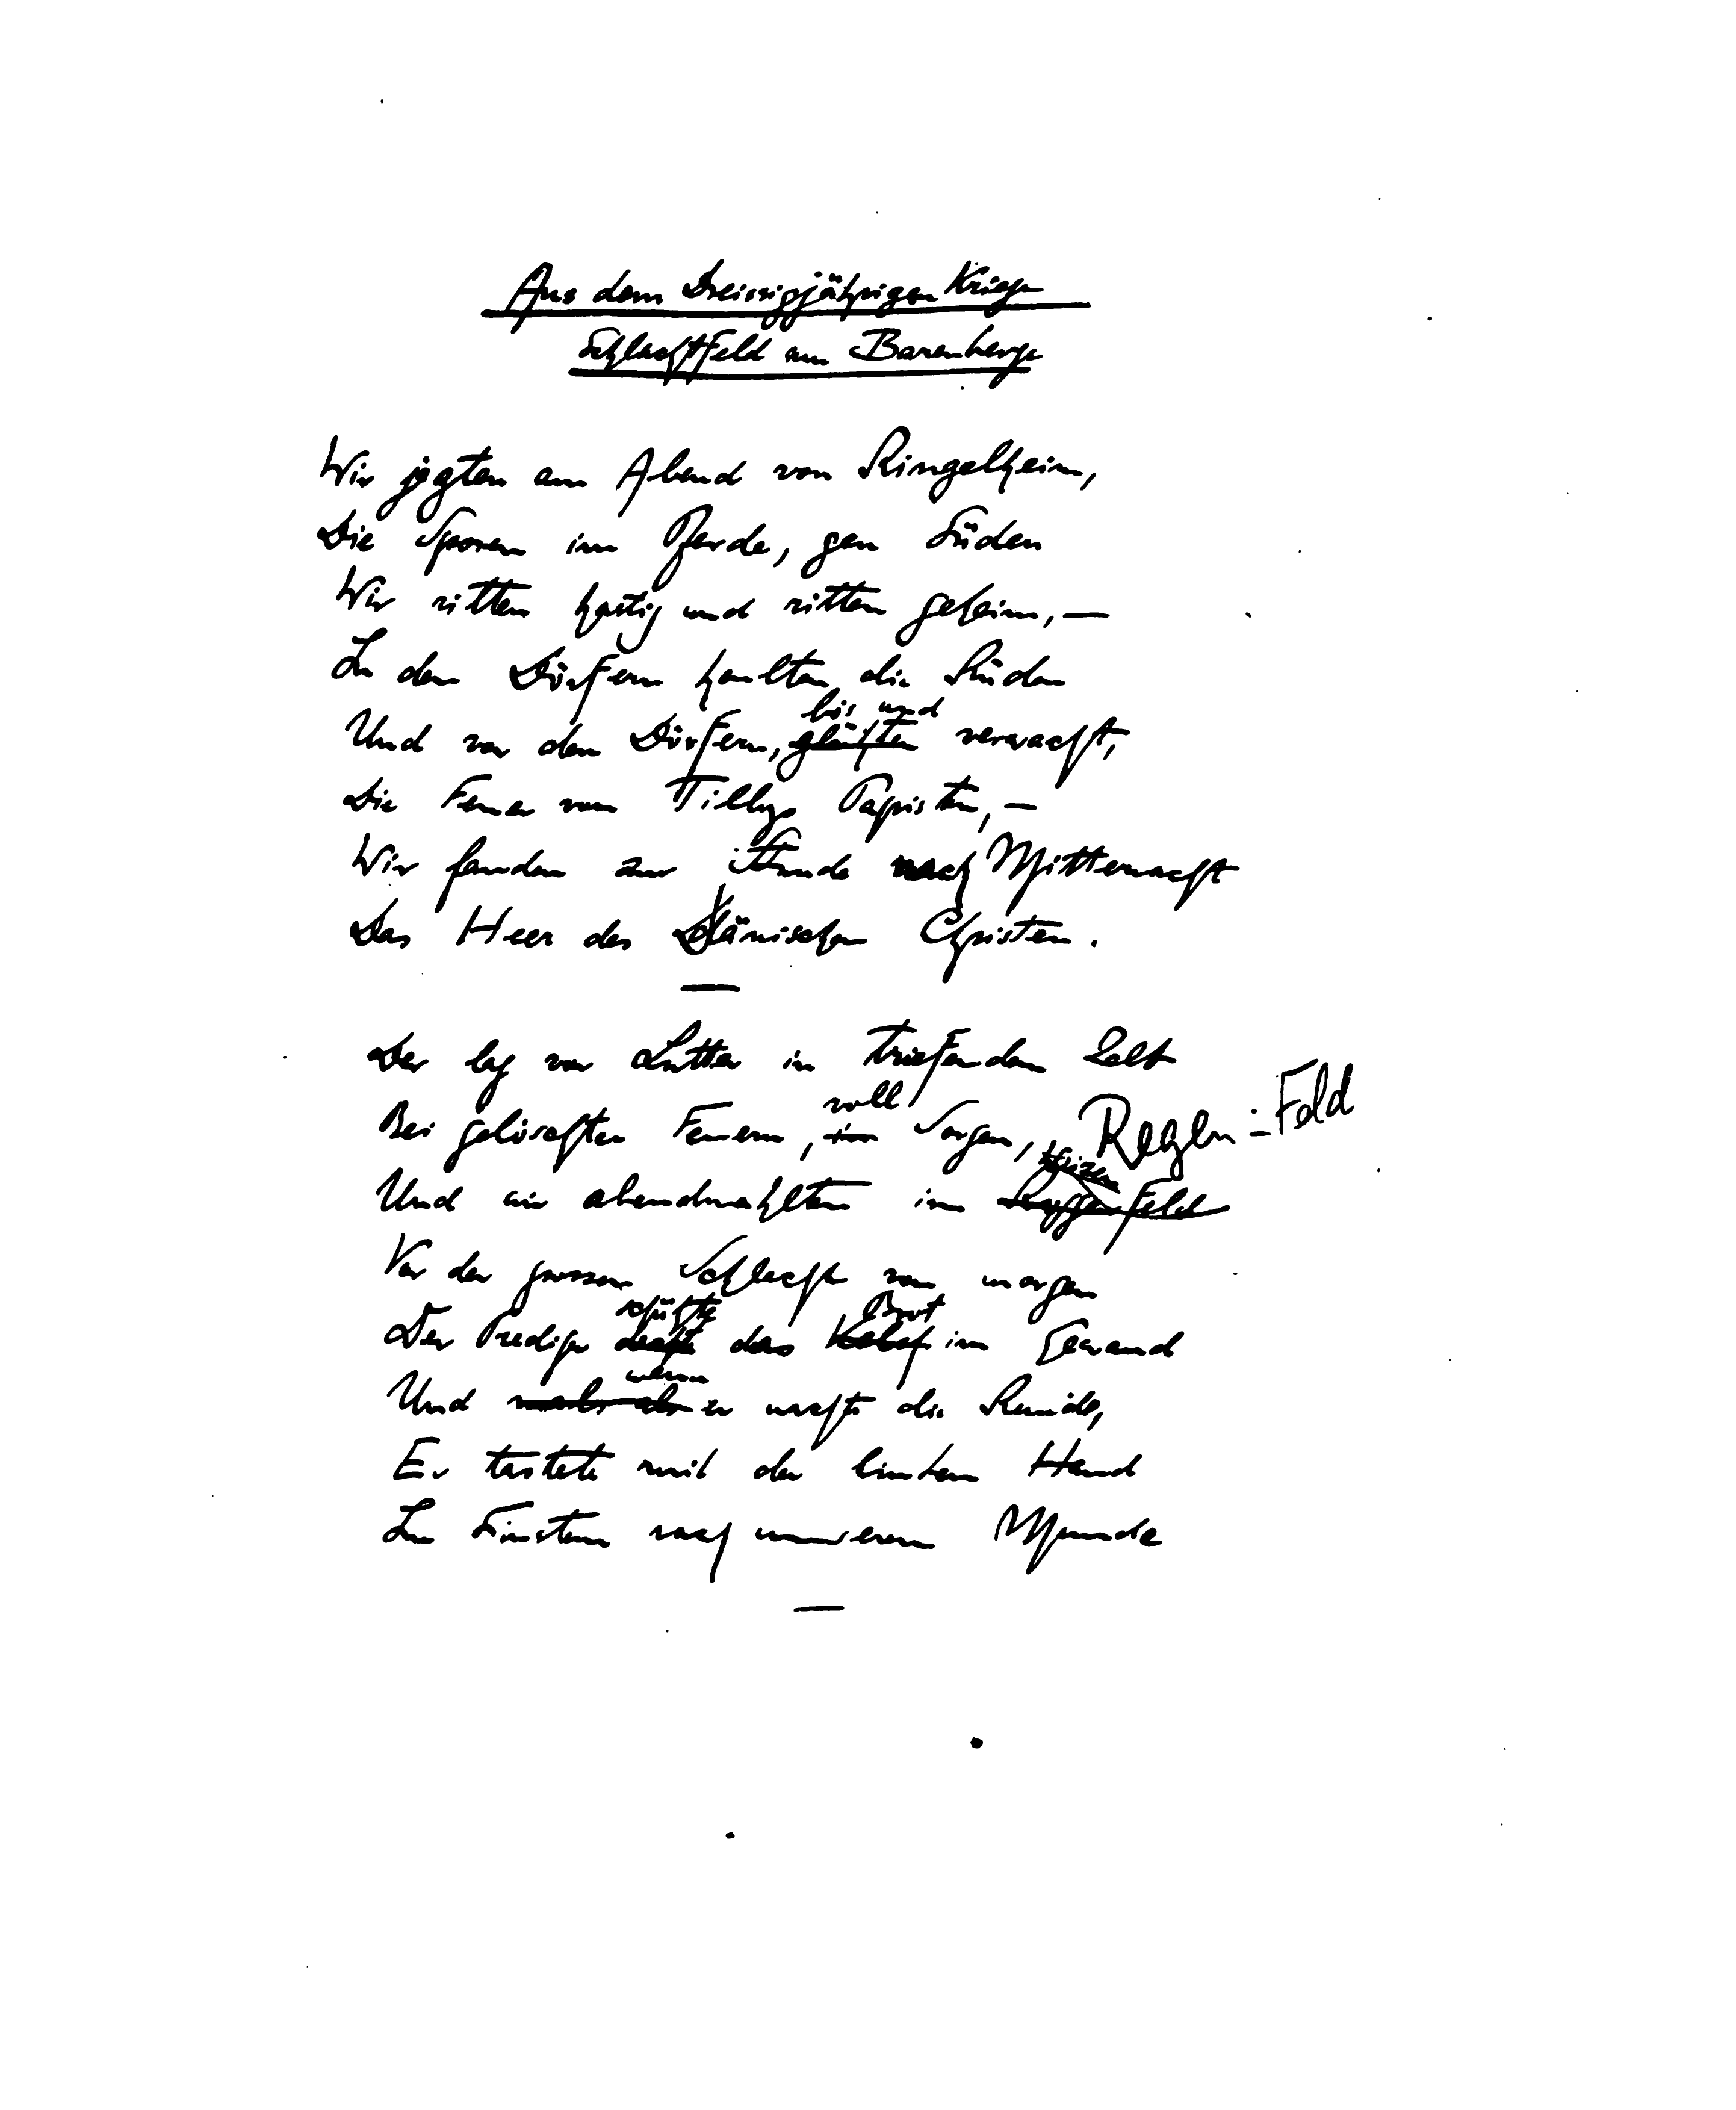 Aus dem Dreissigjährigen Kriege
Schlachtfeld am Barenberge
Wir jagten am Abend von Ringelheim,
Die Sporen im Pferde, gen Süden
Wir ritten hastig und ritten geheim, —
In den Dörfern heulten die Rüden
bis und
Und vor den Dörfern, glühten verwacht,
Die Feuer von Tillys Papisten, —
Wir fanden zur Stunde nach Mitternacht
Das Heer des Dänischen Christen.
—
Der lag vor Lutter in triefendem Zelt
voll
Bei gelöschten Feuern, in Sorgen, Regen-Feld
Weizen
Und wir abendmahlten im feld
Vor der grossen Schlacht von morgen
schützte Brot
Der Prediger deckte das Kelch im Gewand
wenn
Und als er die Runde,
Er tastete mit der linken Hand
Im Finstern nach unserem Munde
—